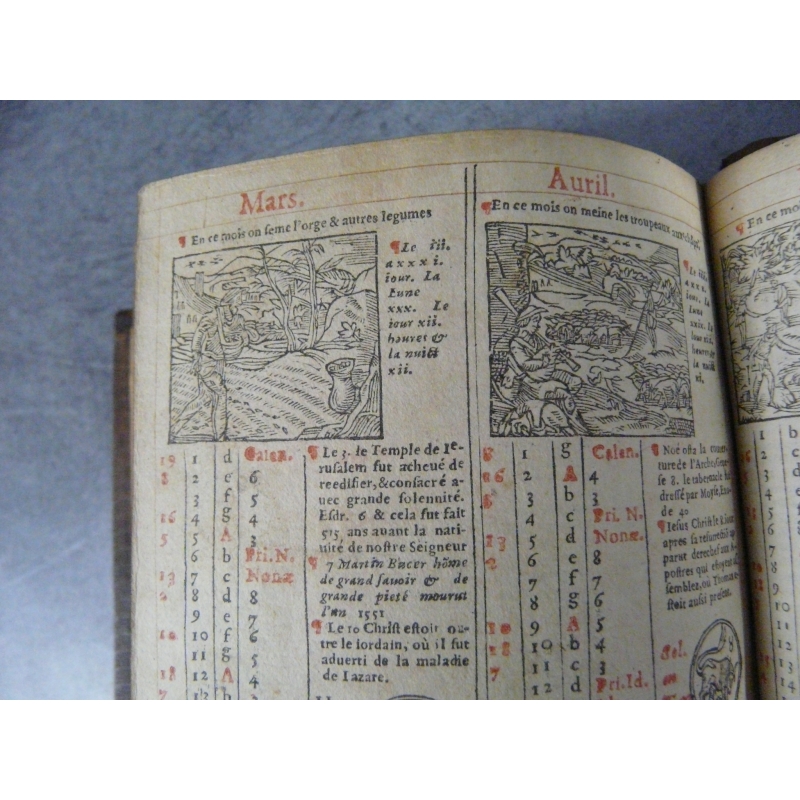 Mars.
¶ En ce mois on seme l'orge & autres legumes
¶ Le iii.
a xxxi.
iour. La
Lune
xxx. Le
iour xii.
heures &
la nuict
xii.
19 1 d Calen.
8 2 e 6
3 f 5
16 4 g 4
5 5 A 3
6 b Pri. N.
13 7 c Nonæ
2 8 d 8
9 e 7
10 10 f 6
11 g 5
18 12 A 4
7 13 b
¶ Le 3. le Temple de Ie-
rusalem fut acheué de
reedifier, & consacré a-
uec grande solennité.
Esdr. 6 & cela fut fait
515 ans auant la nati-
uité de nostre Seigneur
¶ 7 Martin Bucer hõme
de grand sauoir & de
grande pieté mourut
l'an 1551
¶ Le 10 Christ estoit ou-
tre le Iordain, où il fut
aduerti de la maladie
de Lazare.
Auril.
¶ En ce mois on meine les troupeaux aux
¶ Le
iour. La
Lune
xxix. Le
iour
heures &
la nuict
xi,
8 1 g Calen.
16 2 A 4
5 3 b 3
4 c Pri. N.
13 5 d Nonæ.
2 6 e 8
7 f 7
8 g 6
10 9 A 5
18 10 b 4
7 11 c 3
12 d Pri. Id.
¶ Noé osta la
ture de l'Arche,
se 8. le tabernacle
dressé par Moyse, Exo
de 40
¶ Iesus Christ le
apres sa resurrectiõ
parut derechef aux
postres qui
semblez, ou Thomas
stoit aussi present.
Sol.
en
¶ En ce mo
1 b
2 c
3
4
5
6
7
8
9
10
11
12
13
14